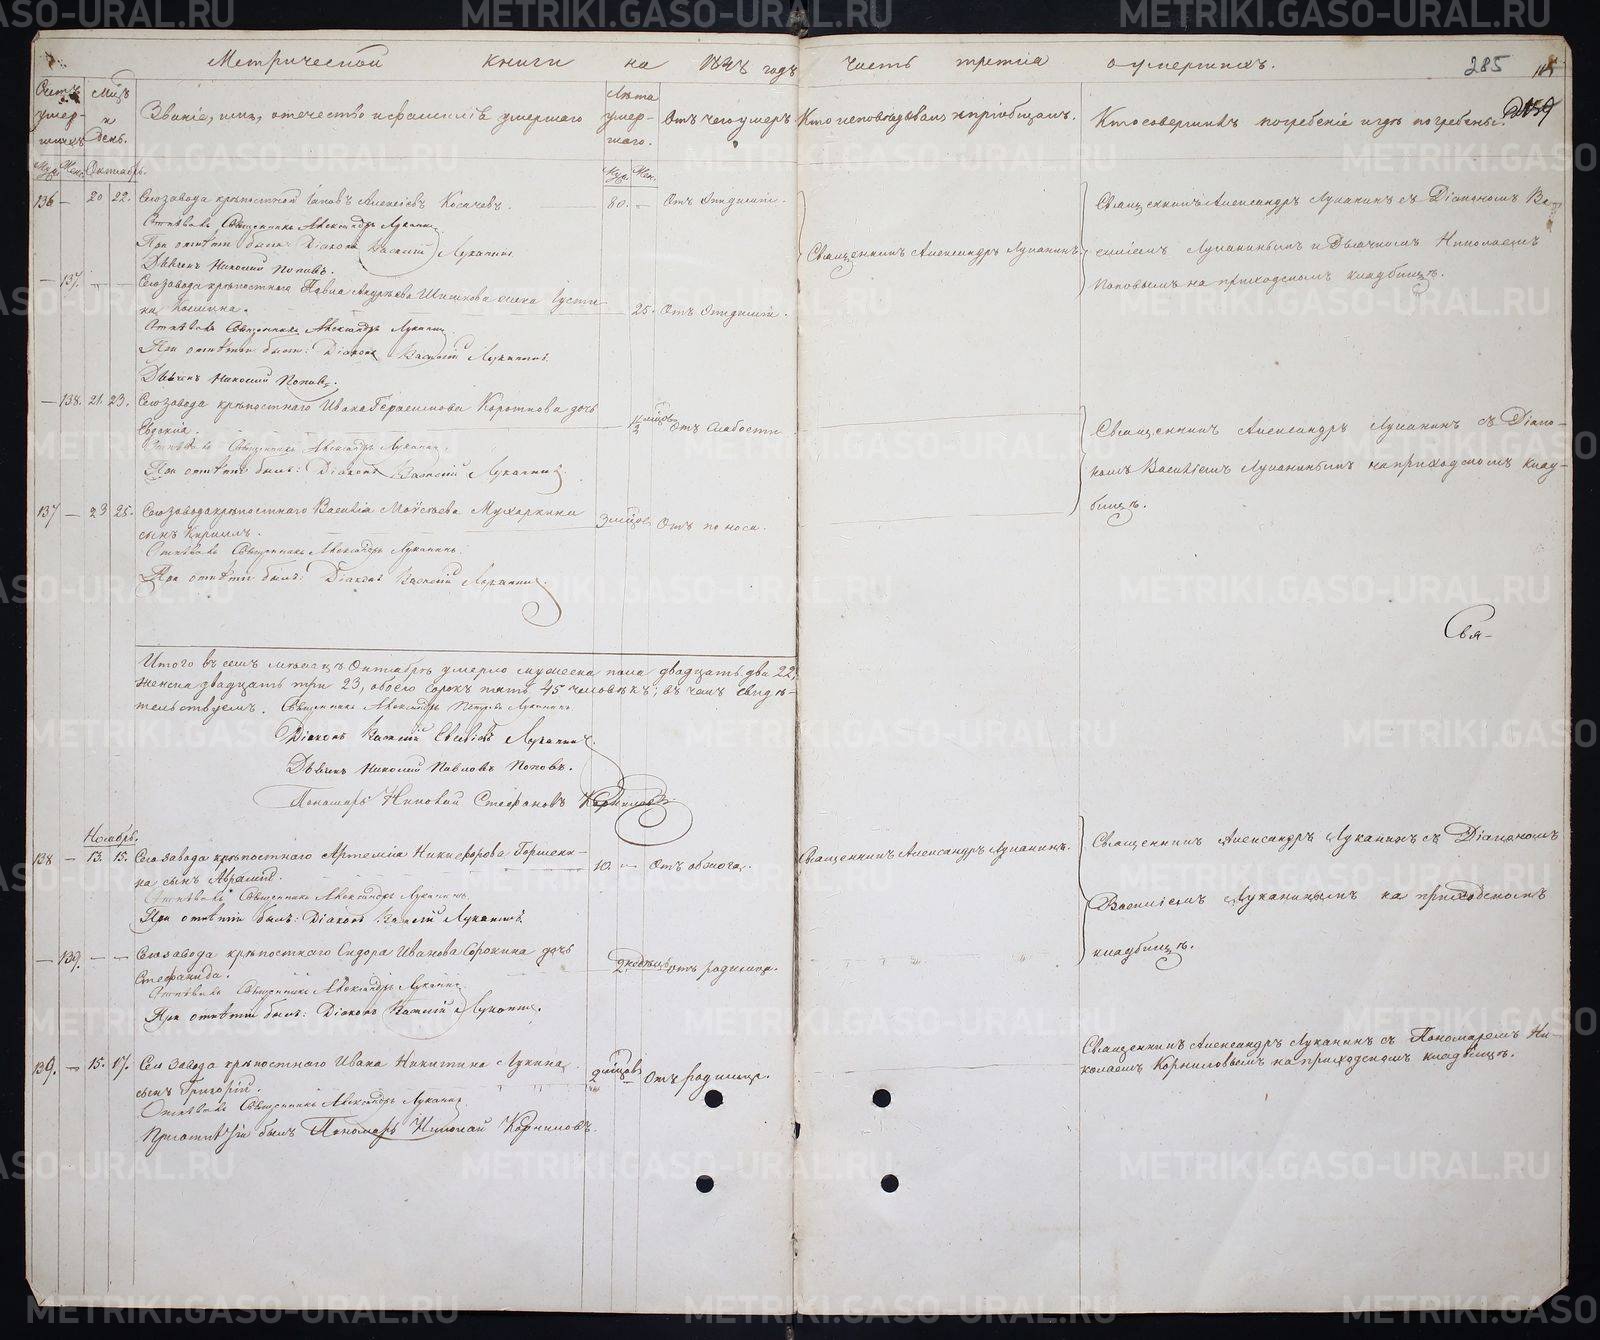 Метрической книги на годъ часть третіа о умершихъ. 285
Счетъ умер- шихъ
Мцъ и день.
Званіе, имя, отечество и фамиліа умершаго
Лѣта умер- шаго.
Отъ чего умеръ
Кто исповѣдовалъ и пріобщалъ.
Кто совершилъ погребеніе и гдѣ погребены.
Муж. Жен. Октябрь. Муж. Жен.
136 — 20 22. Сего завода крѣпостной Алексѣевъ Косачевъ. 80. — Отъ Эпидиміи.
Отпѣвалъ Священникъ Александръ Луканинъ
При отпѣтіи былъ: Діаконъ Василій Луканинъ
Дьячекъ Николай Поповъ.
Священникъ Александръ Луканинъ.
Священникъ Александръ Луканинъ съ Діакономъ Ва-
силіемъ Луканинымъ и Дьячкомъ Николаемъ
Поповымъ на приходскомъ кладбищѣ.
— 137. — — Сего завода крѣпостного Павла Шишкова жена Усти-
на Космина. 25. Отъ Эпидиміи.
Отпѣвалъ Священникъ Александръ Луканинъ
При отпѣтіи былъ: Діаконъ Василій Луканинъ.
Дьячекъ Николай Поповъ.
— 138. 21. 23. Сего завода крѣпостного Ивана Герасимова Короткова дочь
Евдокія. мѣсц. Отъ слабости
Отпѣвалъ Священникъ Александръ Луканинъ.
При отпѣтіи былъ: Діаконъ Василій Луканинъ.
Священникъ Александръ Луканинъ съ Діако-
номъ Василіемъ Луканинымъ на приходскомъ клад-
бищѣ.
137 — 23 25. Сего завода крѣпостного Василіа Моѵсеева Мухаркина
сынъ Кириллъ. 3 мѣсцов. Отъ поноса.
Отпѣвалъ Священникъ Александръ Луканинъ.
При отпѣтіи былъ: Діаконъ Василій Луканинъ.
Свя-
Итого въ семъ мѣсяцѣ Октябрѣ умерло мужеска пола двадцать два 22,
женска двадцать три 23, обоего сорокъ пять 45 человѣкъ; въ чемъ свидѣ-
тельствуемъ. Священникъ Александръ Петровъ Луканинъ.
Діаконъ Василій Луканинъ.
Дьячекъ Николай Павловъ Поповъ.
Пономарь Николай Стефановъ Корниловъ.
Ноябрь.
138 — 13. 15. Сего завода крѣпостного Артеміа Никифорова Горшени-
на сынъ Аврамій. 10. — Отъ обжога.
Отпѣвалъ Священникъ Александръ Луканинъ.
При отпѣтіи былъ: Діаконъ Василій Луканинъ.
Священникъ Александръ Луканинъ.
Священникъ Александръ Луканинъ съ Діакономъ
Василіемъ Луканинымъ на приходскомъ
кладбищѣ.
— 139. — — Сего завода крѣпостного Сидора Иванова Сорокина дочь
Стефанида. 2 недѣль Отъ родимца.
Отпѣвалъ Священникъ Александръ Луканинъ
При отпѣтіи былъ: Діаконъ Василій Луканинъ.
139. — 15. 17. Сего завода крѣпостного Ивана Никитина Лукина
сынъ Григорій. 2 мѣсцовъ Отъ родимца.
Отпѣвалъ Священникъ Александръ Луканинъ
При отпѣтіи былъ Пономарь Николай Корниловъ.
Священникъ Александръ Луканинъ съ Пономаремъ Ни-
колаемъ Корниловымъ на приходскомъ кладбищѣ.
METRIKI.GASO-URAL.RU